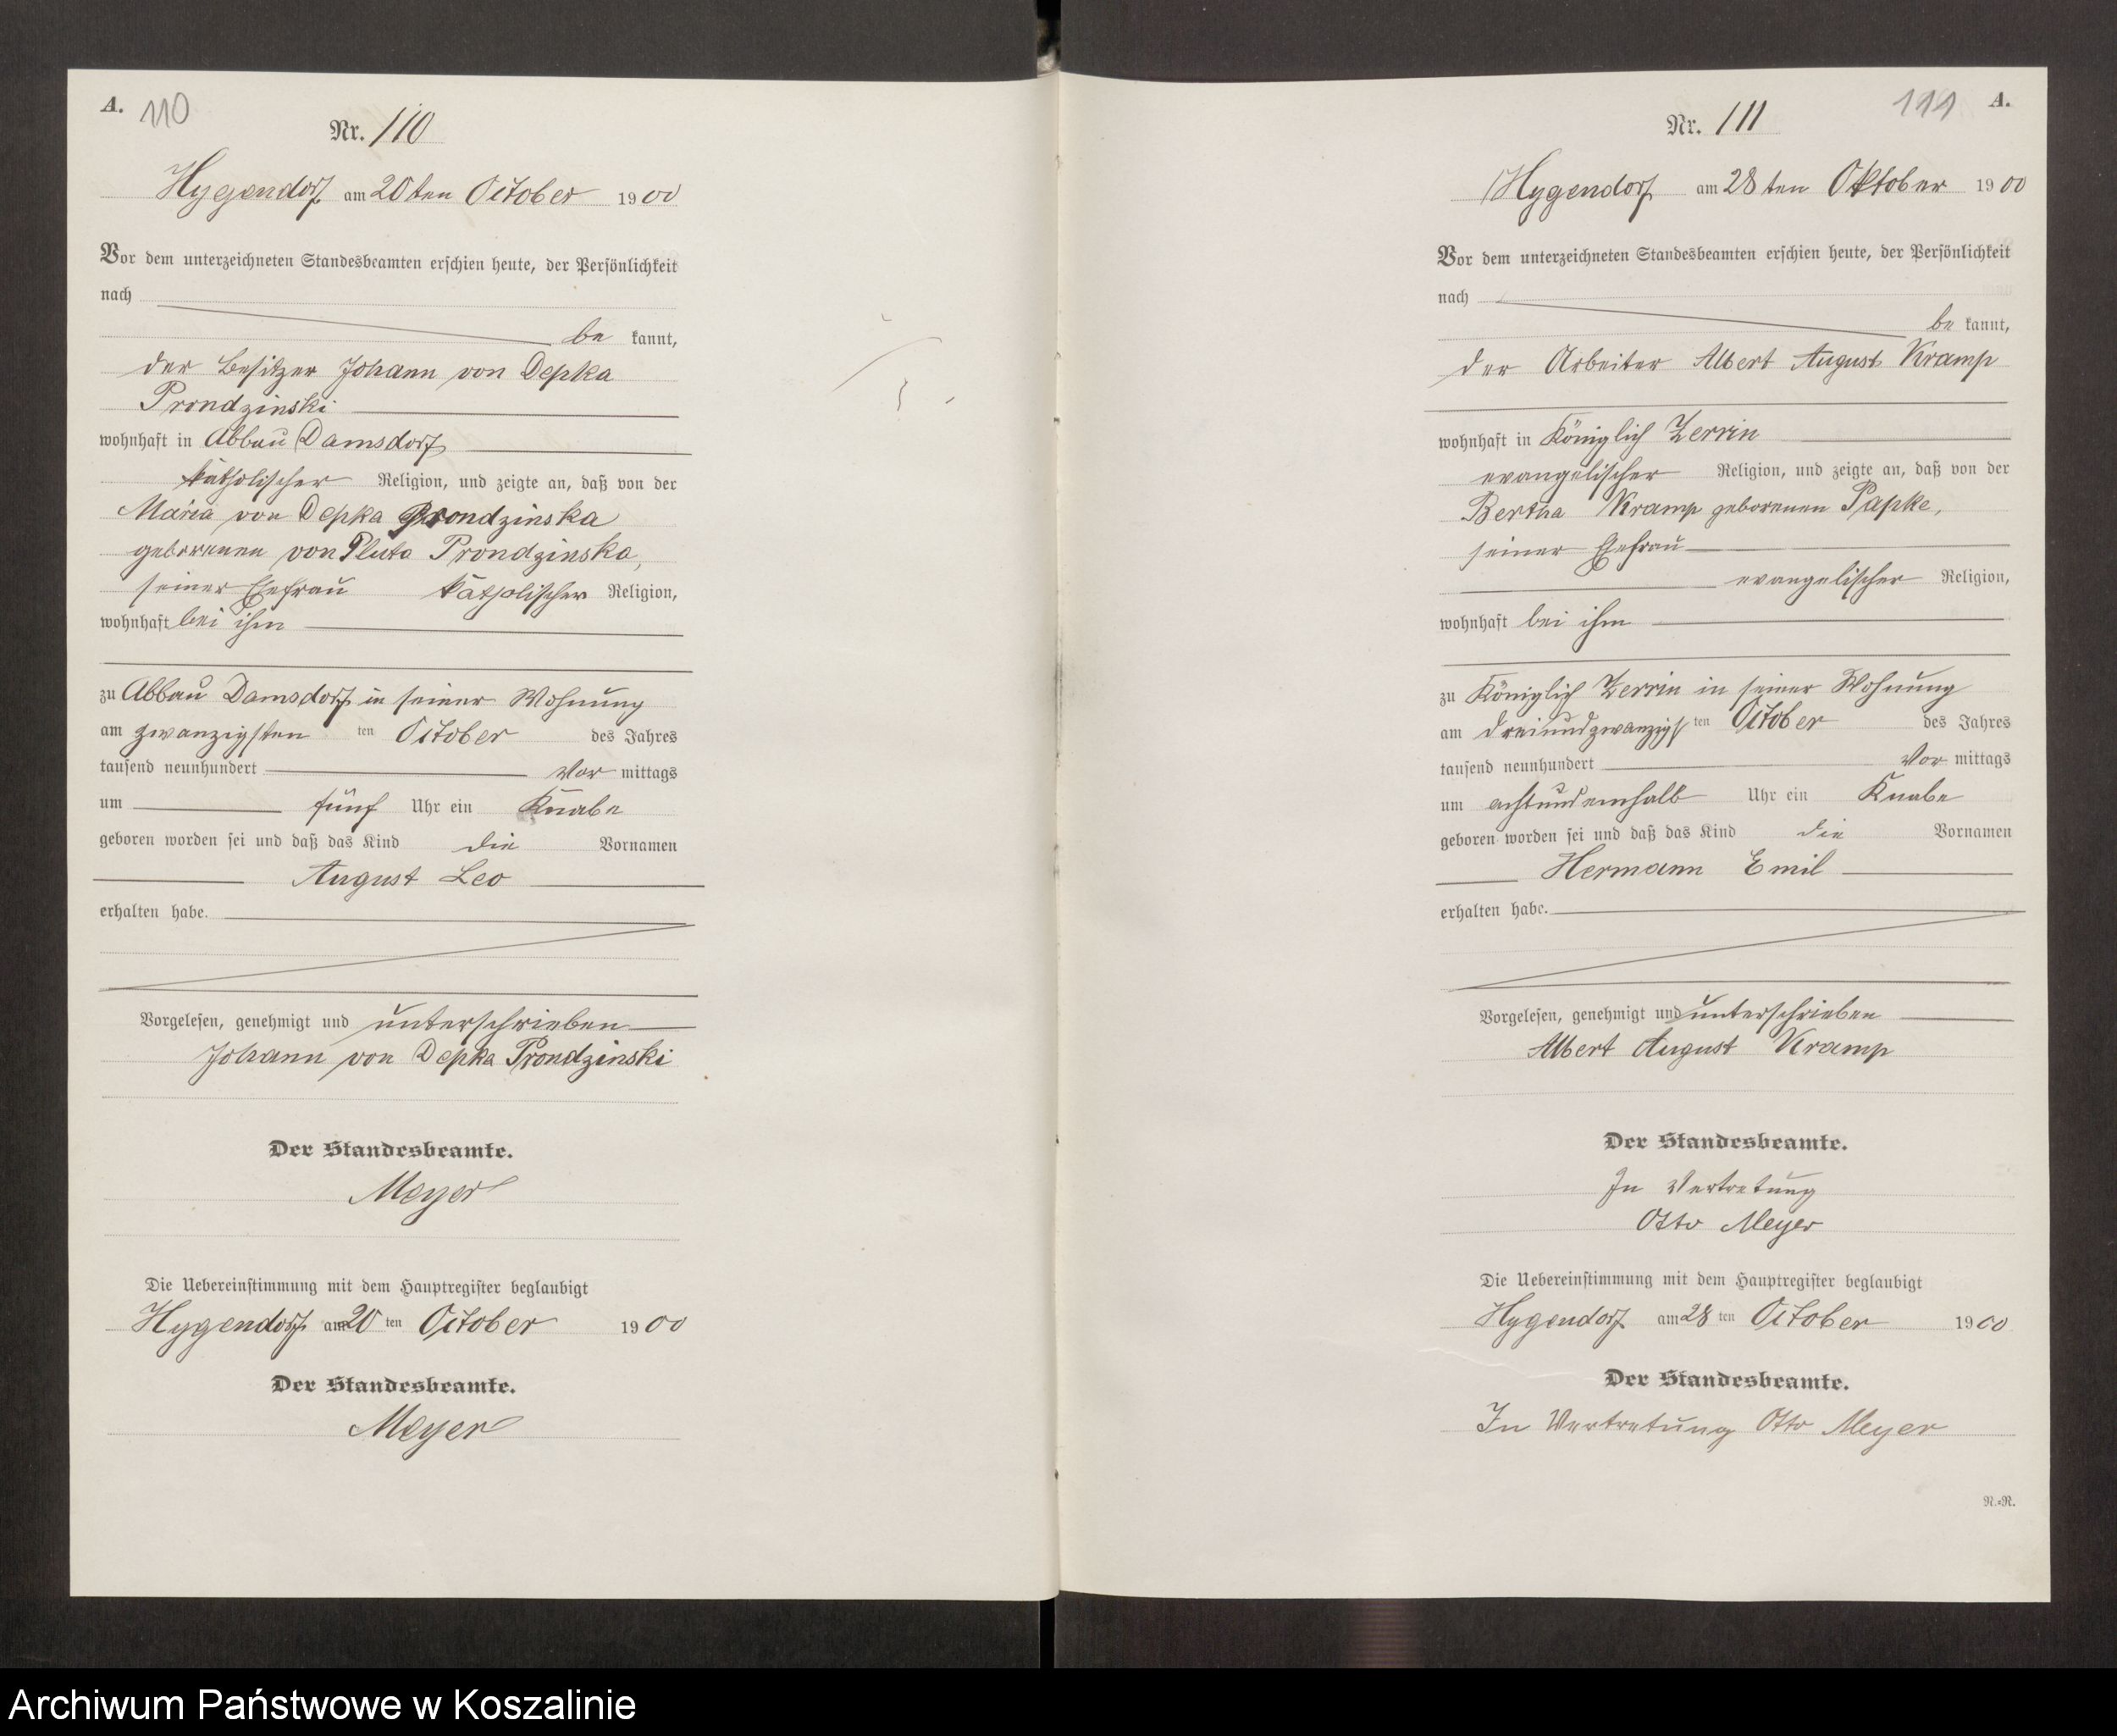 A. 110
Nr. 110
Hygendorf am 20ten October 1900
Vor dem unterzeichneten Standesbeamten erschien heute, der Persönlichkeit
nach
be kannt,
der Besitzer Johann von Depka
Prondzinski
wohnhaft in Abbau Damsdorf
katholischer Religion, und zeigte an, daß von der
Maria von Depka Prondzinska
geborenen von Pluto Prondzinska,
seiner Ehefrau katholischer Religion,
wohnhaft bei ihm
zu Abbau Damsdorf in seiner Wohnung
am zwanzigsten ten October des Jahres
tausend neunhundert Vor mittags
um fünf Uhr ein Knabe
geboren worden sei und daß das Kind die Vornamen
August Leo
erhalten habe.
Vorgelesen, genehmigt und unterschrieben
Johann von Depka Prondzinski
Der Standesbeamte.
Meyer
Die Uebereinstimmung mit dem Hauptregister beglaubigt
Hygendorf am 20 ten October 1900
Der Standesbeamte.
Meyer
111 A.
Nr. 111
Hygendorf am 28ten Oktober 1900
Vor dem unterzeichneten Standesbeamten erschien heute, der Persönlichkeit
nach
be kannt,
der Arbeiter Albert August Kramp
wohnhaft in Königlich Zerrin
evangelischer Religion, und zeigte an, daß von der
Bertha Kramp geborenen Papke,
seiner Ehefrau
evangelischer Religion,
wohnhaft bei ihm
zu Königlich Zerrin in seiner Wohnung
am dreiundzwanzigs ten October des Jahres
tausend neunhundert Vor mittags
um achtundeinhalb Uhr ein Knabe
geboren worden sei und daß das Kind die Vornamen
Hermann Emil
erhalten habe.
Vorgelesen, genehmigt und unterschrieben
Albert August Kramp
Der Standesbeamte.
In Vertretung
Otto Meyer
Die Uebereinstimmung mit dem Hauptregister beglaubigt
Hygendorf am 28 ten October 1900
Der Standesbeamte.
In Vertretung Otto Meyer
R.=R.
Archiwum Państwowe w Koszalinie